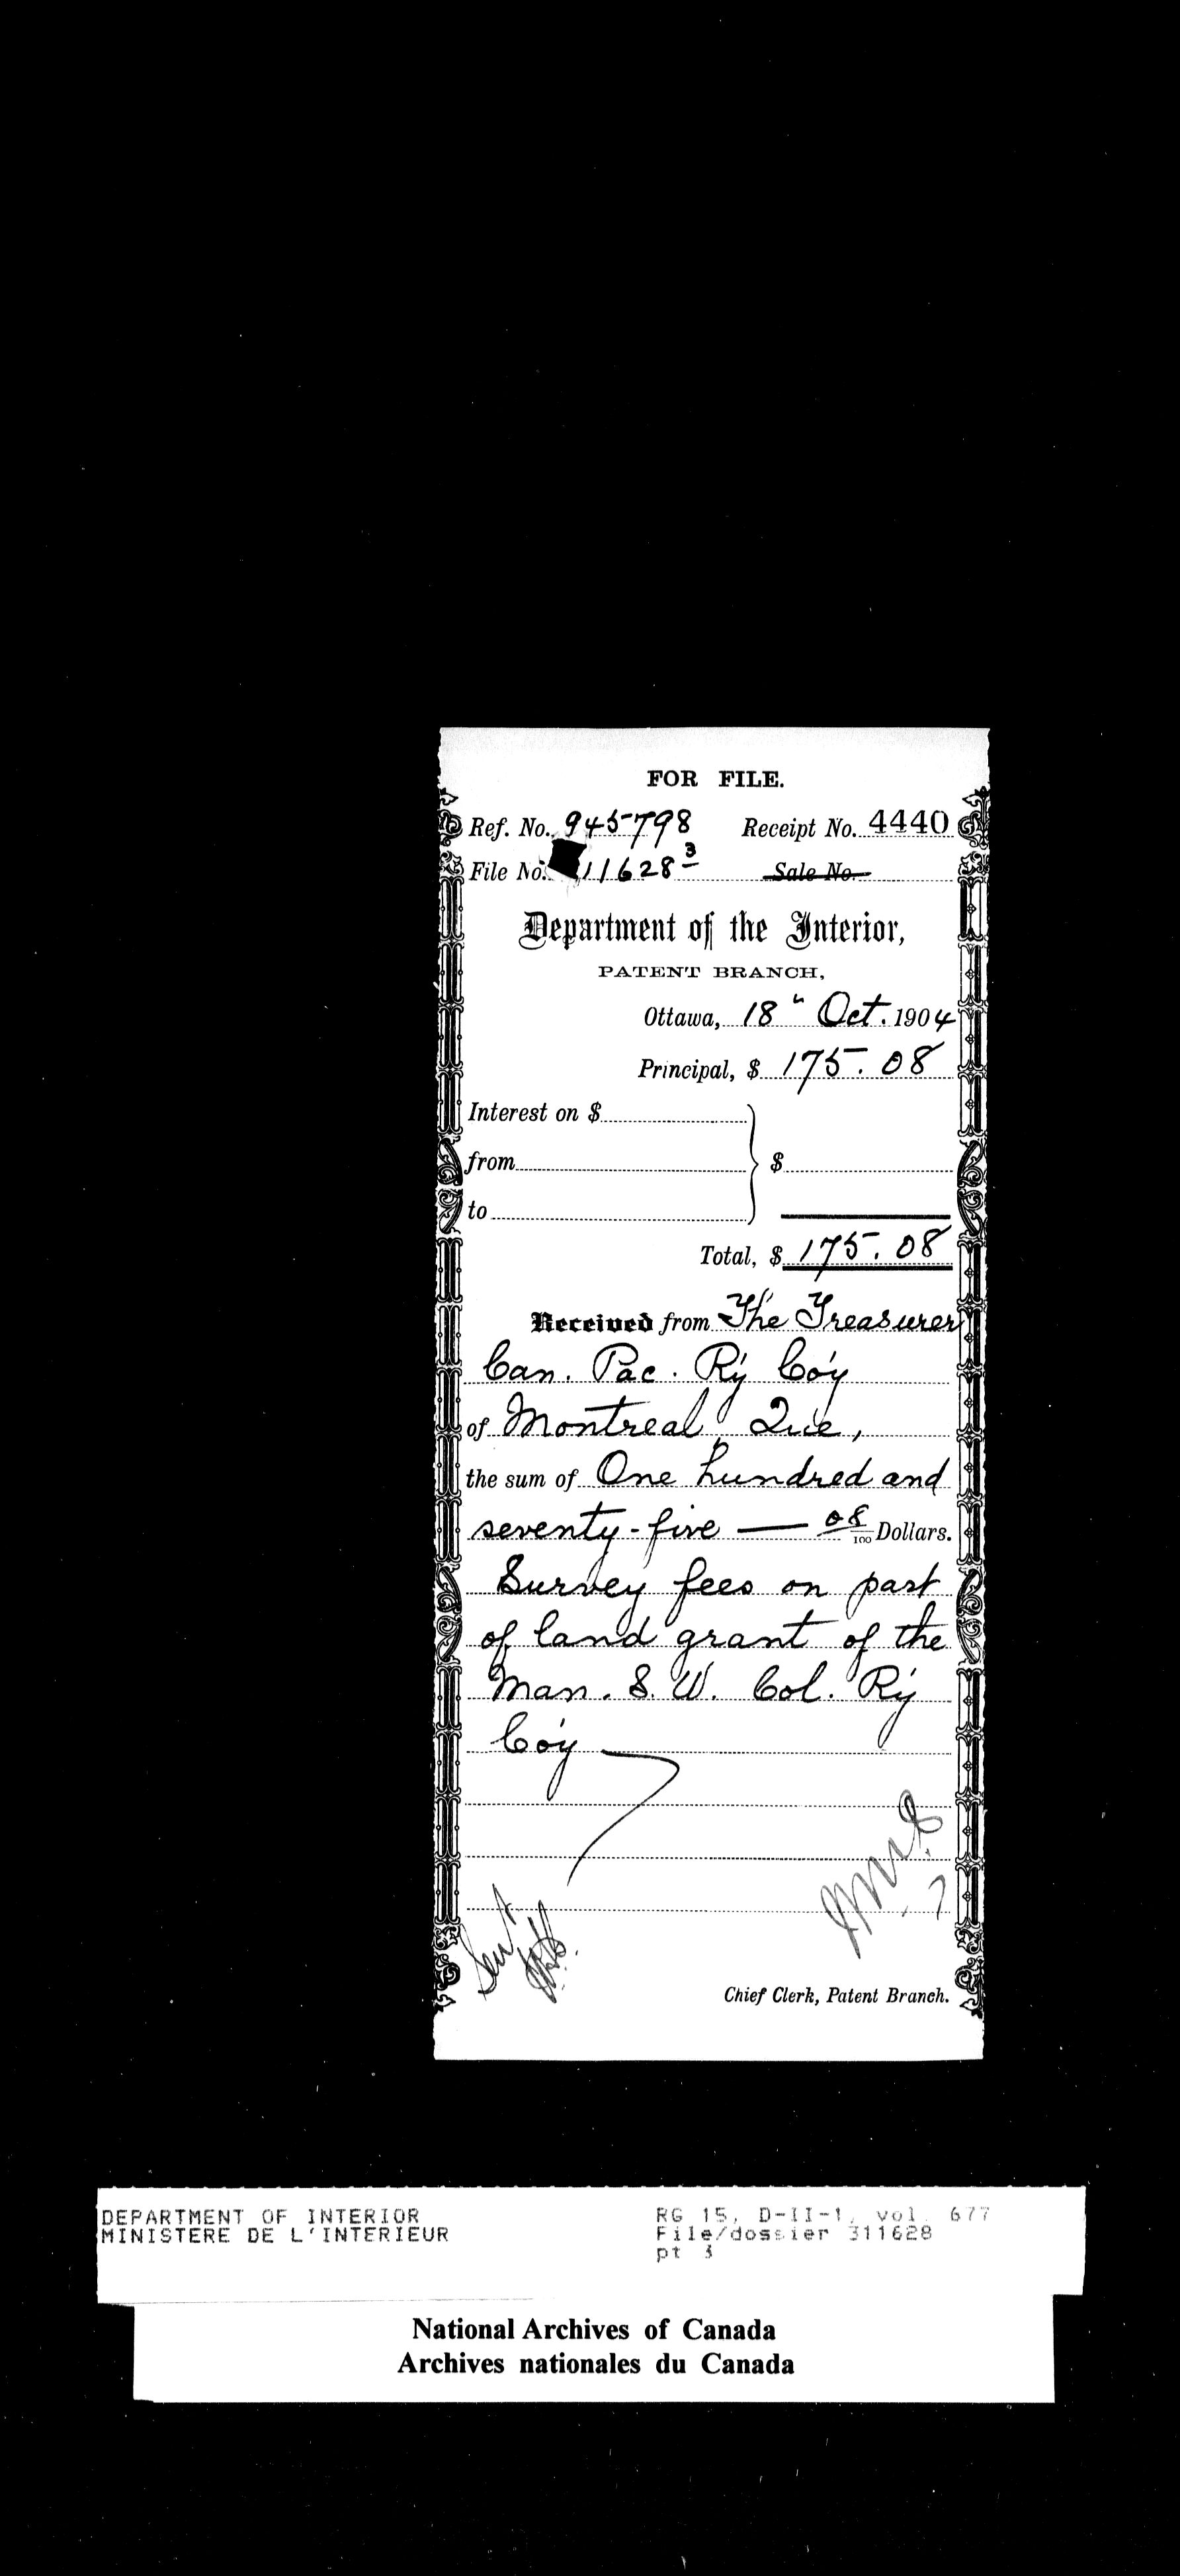 FOR FILE.
Ref. No. 945798 Receipt No. 4440
File No. 11628 3 Sale No.
Department of the Interior,
PATENT BRANCH,
Ottawa, 18" Oct. 1904
Principal, $ 175.08
Interest on $
from $
to
Total, $ 175.08
Received from The Treasurer
Can. Pac. Ry Co'y
of Montreal, Que,
the sum of One hundred and
seventy-five — 08/100 Dollars.
Survey fees on part
of land grant of the
Man. S. W. Col. Ry
Co'y
Sent
Chief Clerk, Patent Branch.
DEPARTMENT OF INTERIOR RG 15, D-II-1, vol. 677
MINISTERE DE L'INTERIEUR File/dossier 311628
pt 3
National Archives of Canada
Archives nationales du Canada